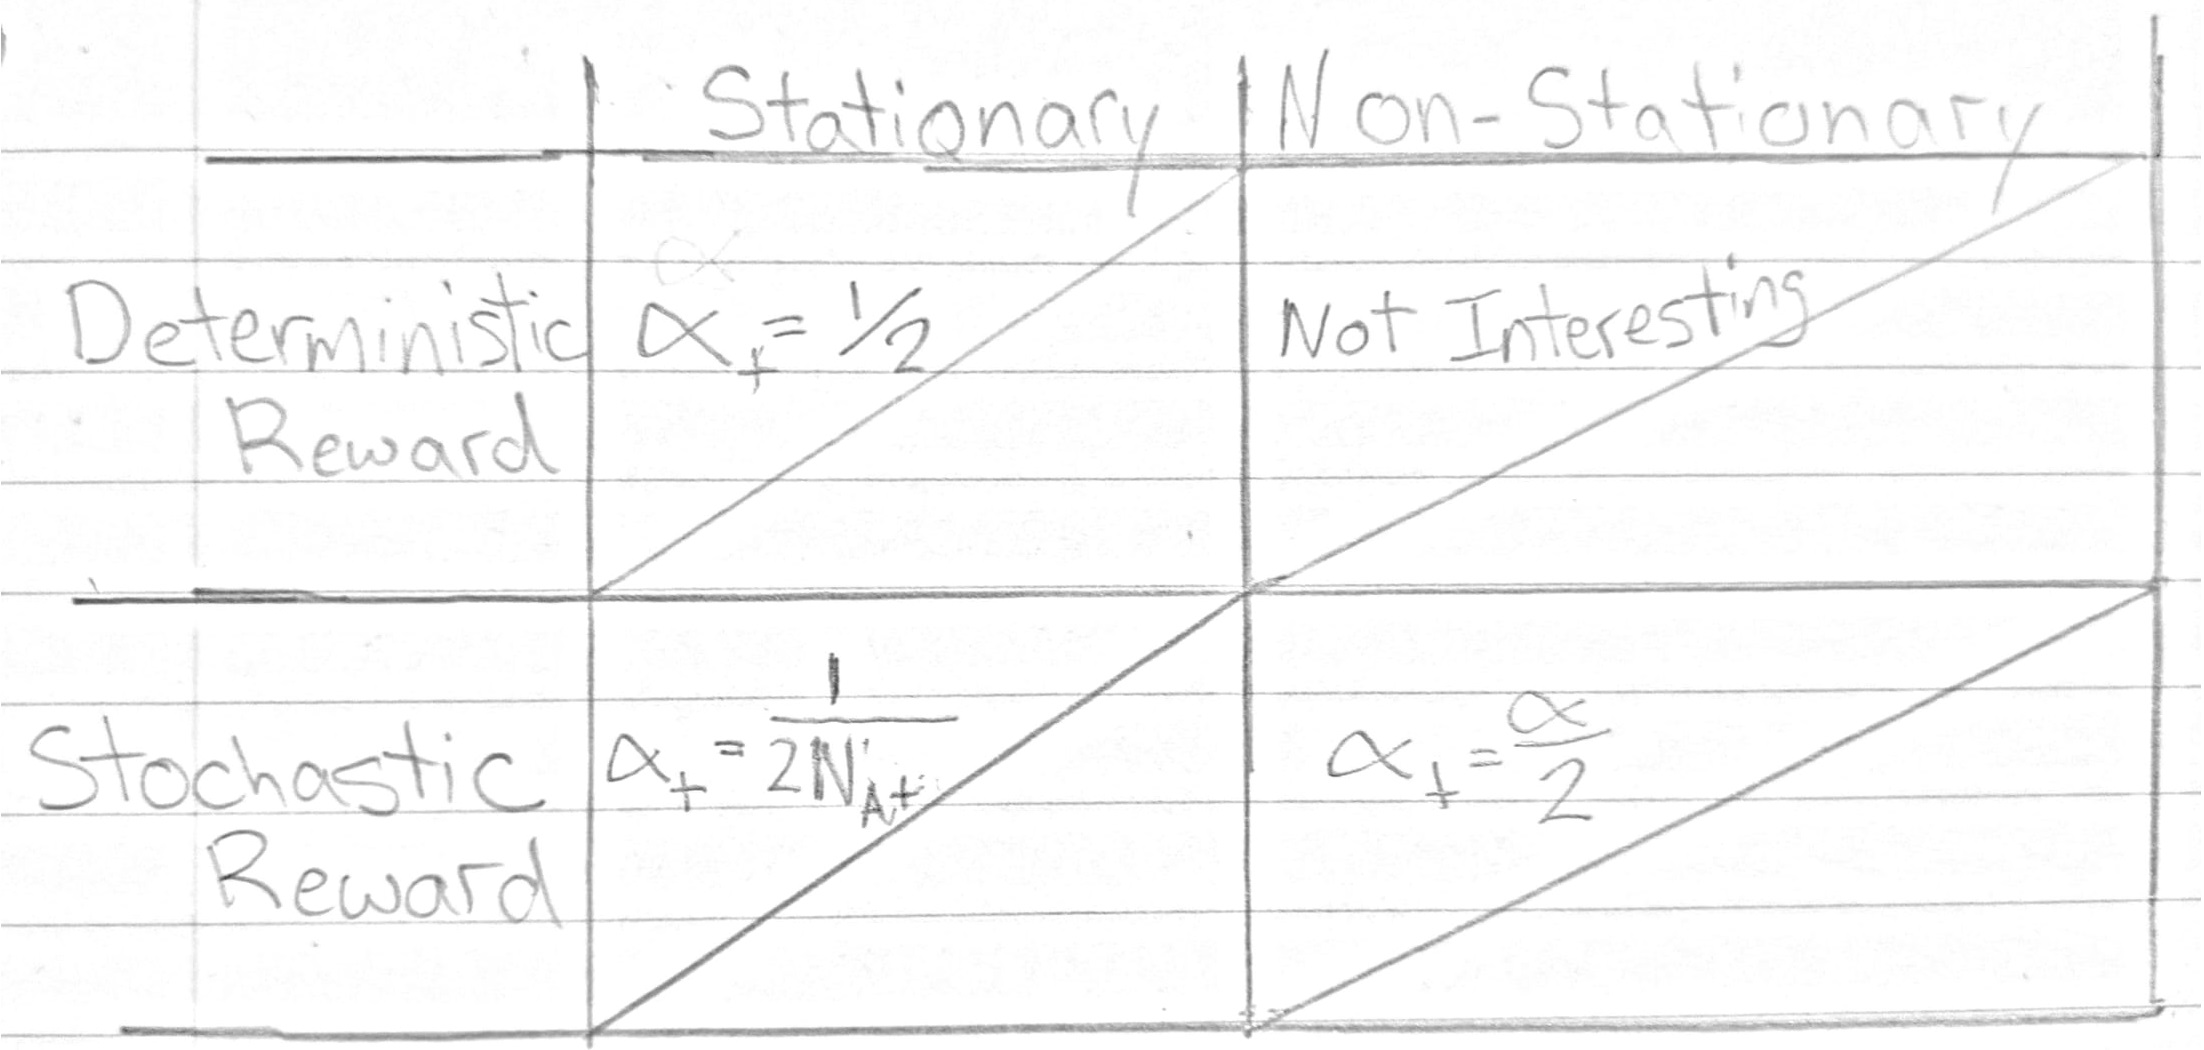 Stationary Non-Stationary
Deterministic Reward
α_t = 1/2
Not Interesting
Stochastic Reward
α_t = 1/(2N_{A_t})
α_t = α/2